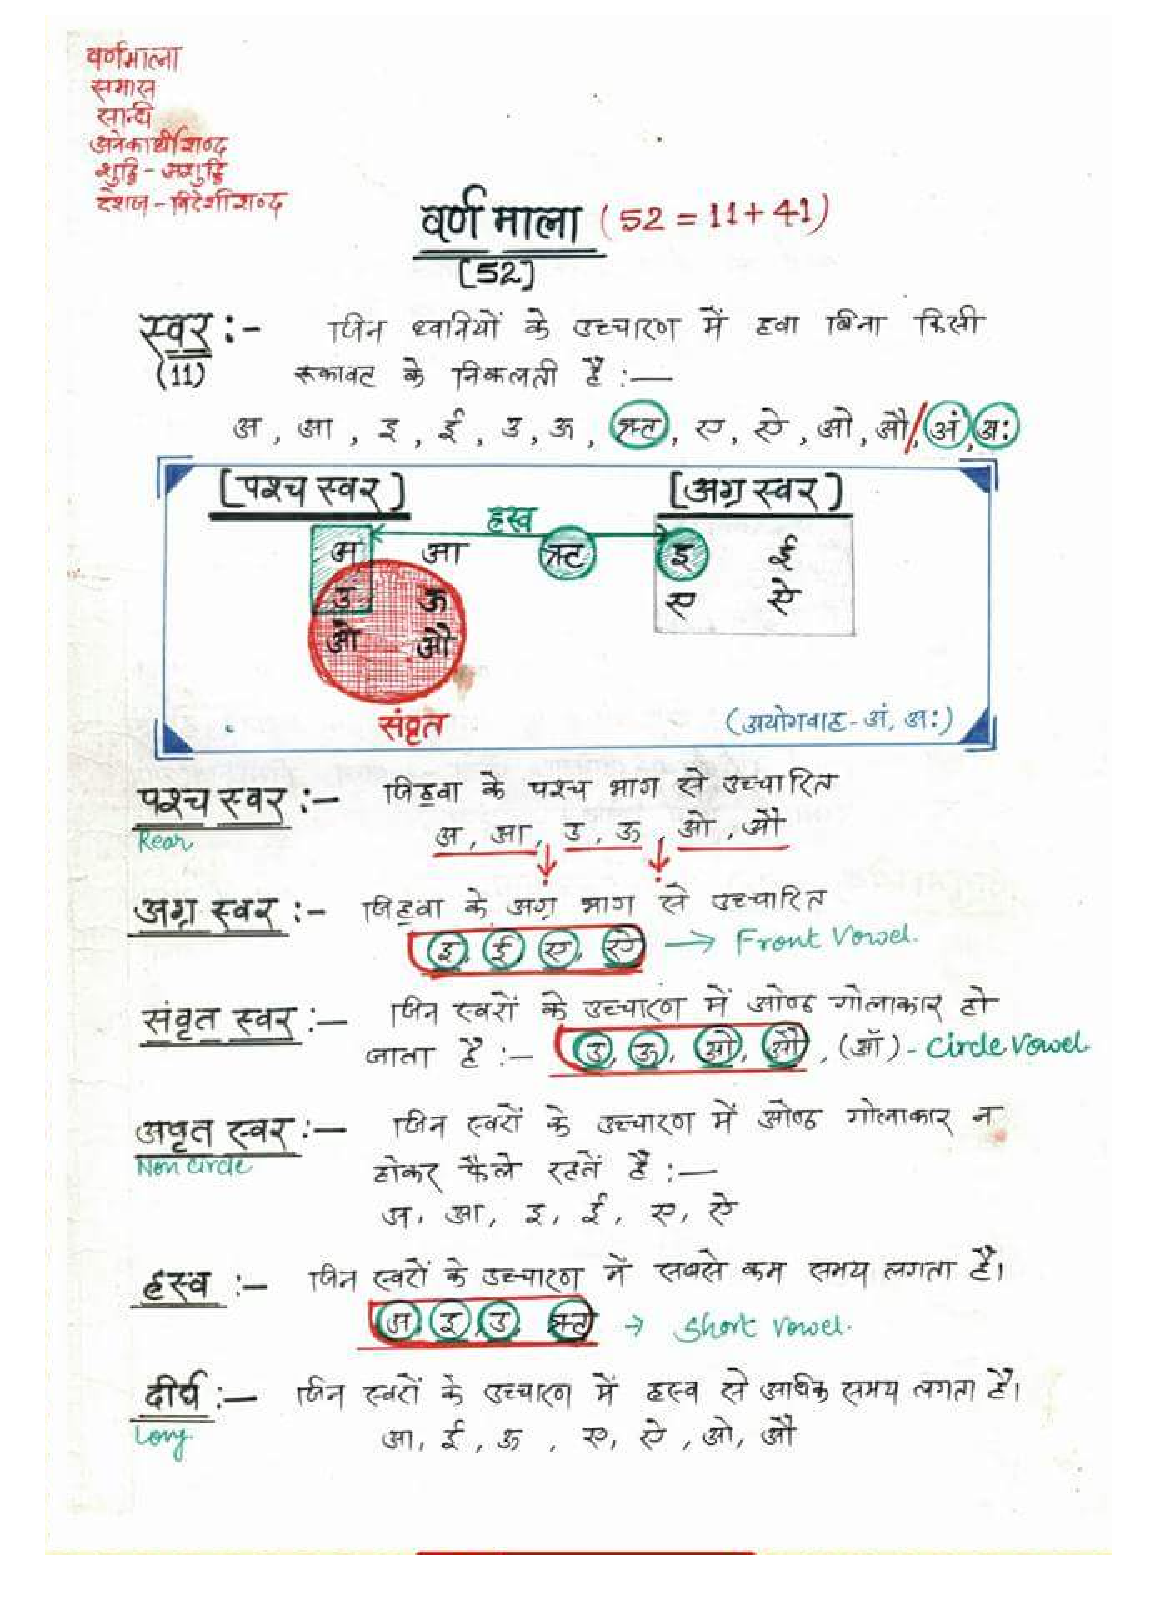 वर्णमाला
समास
सान्धी
अनेकार्थी शब्द
शुद्धि - अशुद्धि
देशज - विदेशी शब्द
वर्ण माला (52 = 11 + 41)
[52]
स्वर :- जिन ध्वनियों के उच्चारण में हवा बिना किसी
(11) रूकावट के निकलती है :—
अ , आ , इ , ई , उ , ऊ , ऋ , ए , ऐ , ओ , औ / , अं , अः
[पश्च स्वर] [अग्र स्वर]
ह्रस्व
अ आ ऋ इ ई
उ ऊ ए ऐ
ओ औ
संवृत (अयोगवाह - अं, अः)
पश्च स्वर :— जिह्वा के पश्च भाग से उच्चारित
Rear अ , आ , उ , ऊ , ओ , औ
अग्र स्वर :— जिह्वा के अग्र भाग से उच्चारित
इ, ई, ए, ऐ → Front Vowel.
संवृत स्वर :— जिन स्वरों के उच्चारण में ओष्ठ गोलाकार हो
जाता है :— उ, ऊ, ओ, औ , (ऑ) - Circle Vowel
अवृत स्वर :— जिन स्वरों के उच्चारण में ओष्ठ गोलाकार न
Non circle होकर फैले रहतें है :—
अ, आ, इ, ई, ए, ऐ
ह्रस्व :— जिन स्वरों के उच्चारण में सबसे कम समय लगता है।
अ, इ, उ, ऋ → Short Vowel.
दीर्घ :— जिन स्वरों के उच्चारण में ह्रस्व से अधिक समय लगता है।
Long आ, ई , ऊ , ए, ऐ , ओ, औ